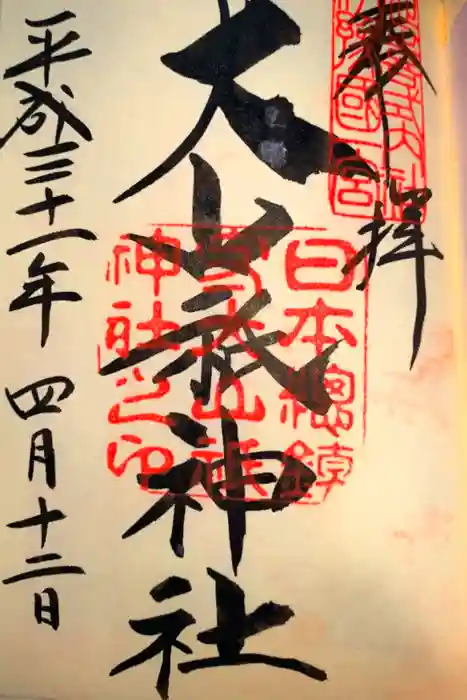 奉拝
伊豫國一宮
大山祇神社
日本總鎮
守大山祇
神社之印
平成三十一年 四月十二日